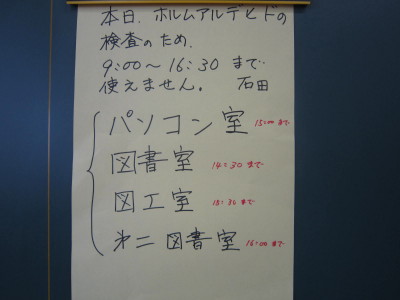 本日、ホルムアルデヒドの
検査のため、
9:00〜16:30 まで
使えません。 石田
パソコン室 15:00まで
図書室 14:30まで
図工室 15:30まで
第二図書室 16:00まで